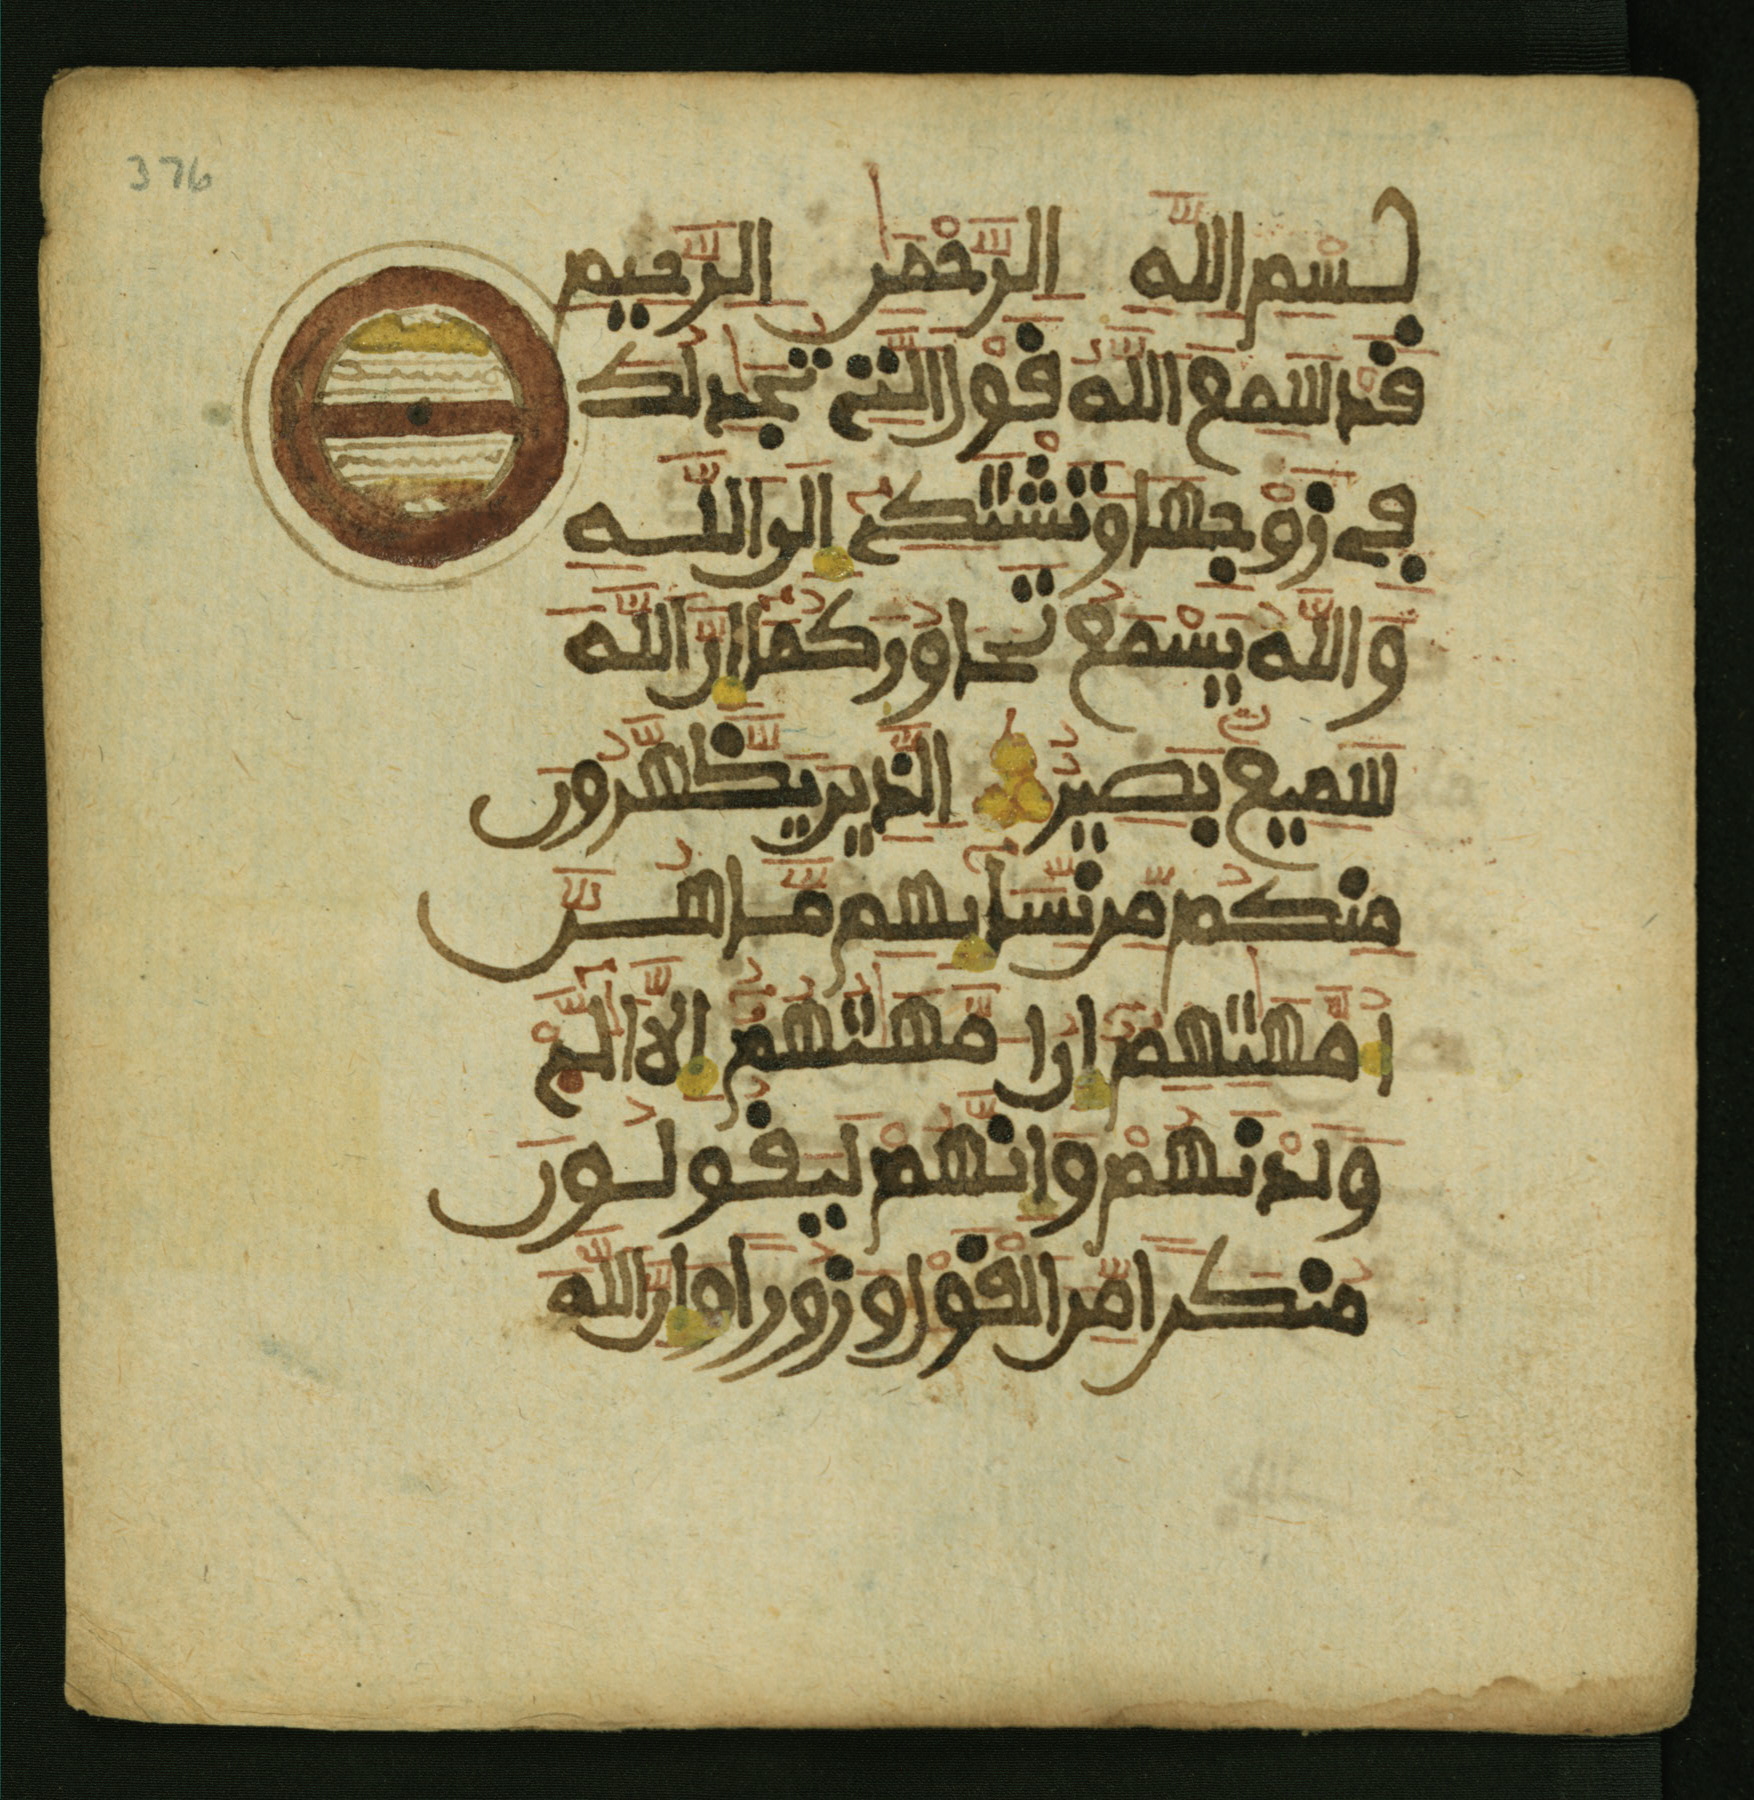 376
بسم الله الرحمن الرحيم
قد سمع الله قول التي تجدلك
في زوجها وتشتكي إلى الله
والله يسمع تحاوركما إن الله
سميع بصير الذين يظهرون
منكم من نسايهم ما هن
أمهتهم إن أمهتهم إلا الي
ولدنهم وإنهم ليقولون
منكرا من القول وزورا وإن الله